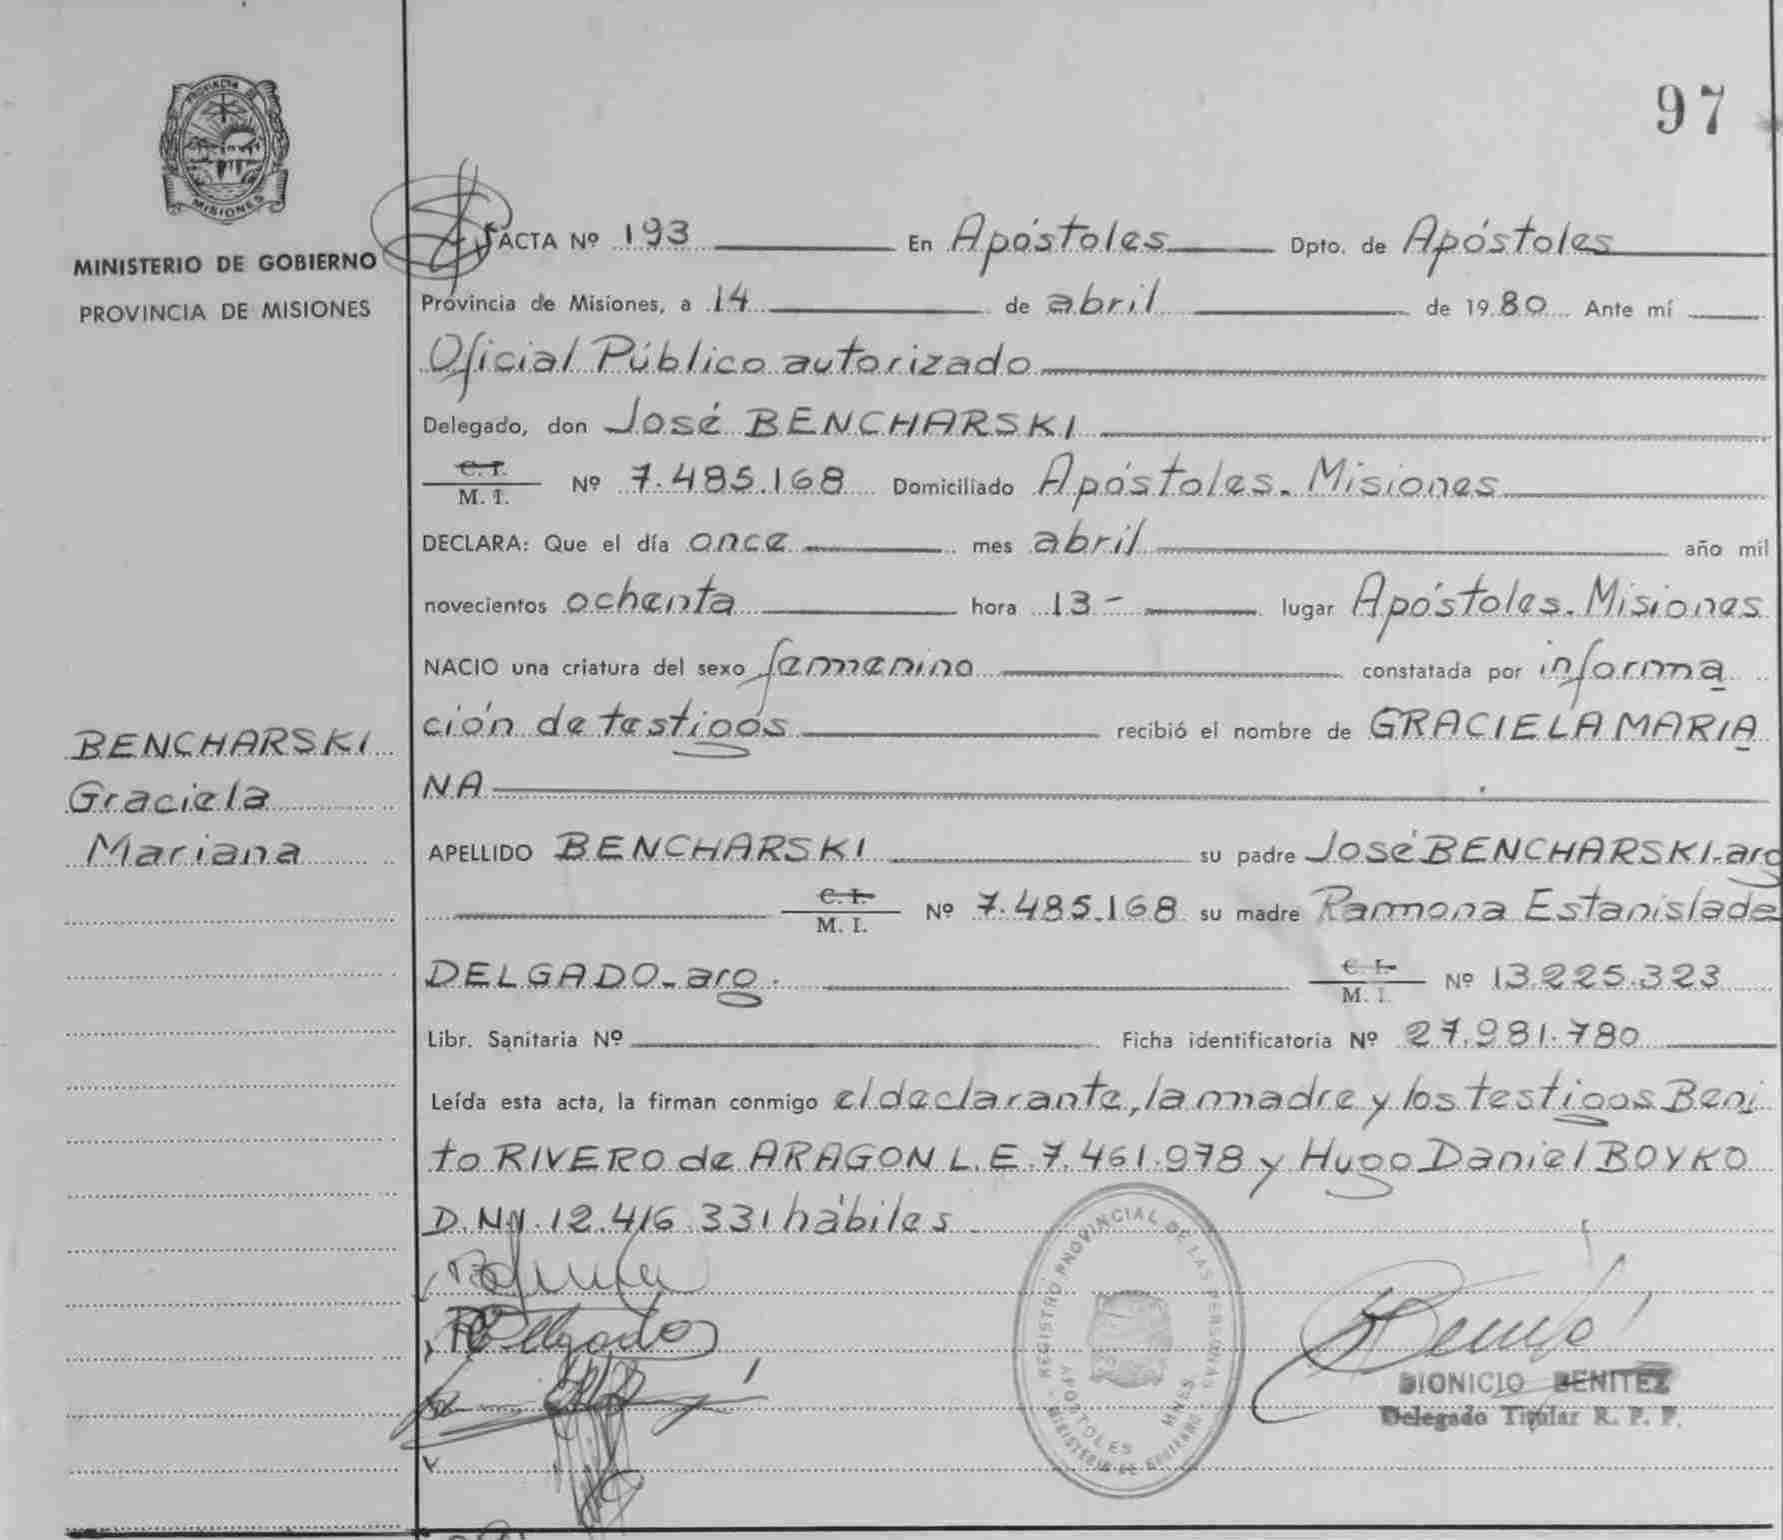 PROVINCIA DE
MISIONES
MINISTERIO DE GOBIERNO
PROVINCIA DE MISIONES
BENCHARSKI
Graciela
Mariana
97
ACTA Nº 193 En Apóstoles Dpto. de Apóstoles
Provincia de Misiones, a 14 de abril de 1980 Ante mí
Oficial Público autorizado
Delegado, don José BENCHARSKI
C. I.
M. I. Nº 7.485.168 Domiciliado Apóstoles. Misiones
DECLARA: Que el día once mes abril año mil
novecientos ochenta hora 13- lugar Apóstoles. Misiones
NACIO una criatura del sexo femenino constatada por informa
ción de testigos recibió el nombre de GRACIELA MARIA
NA
APELLIDO BENCHARSKI su padre José BENCHARSKI-arg
C. I.
M. I. Nº 7.485.168 su madre Ramona Estanislada
DELGADO-arg. C. I.
M. I. Nº 13.225.323
Libr. Sanitaria Nº Ficha identificatoria Nº 27.981.780
Leída esta acta, la firman conmigo el declarante, la madre y los testigos Beni
to RIVERO de ARAGON L.E. 7.461.978 y Hugo Daniel BOYKO
D.N.I. 12.416.331 hábiles
Delgado
REGISTRO PROVINCIAL DE LAS PERSONAS
APOSTOLES MNES
MINISTERIO DE GOBIERNO
DIONICIO BENITEZ
Delegado Titular R. P. P.